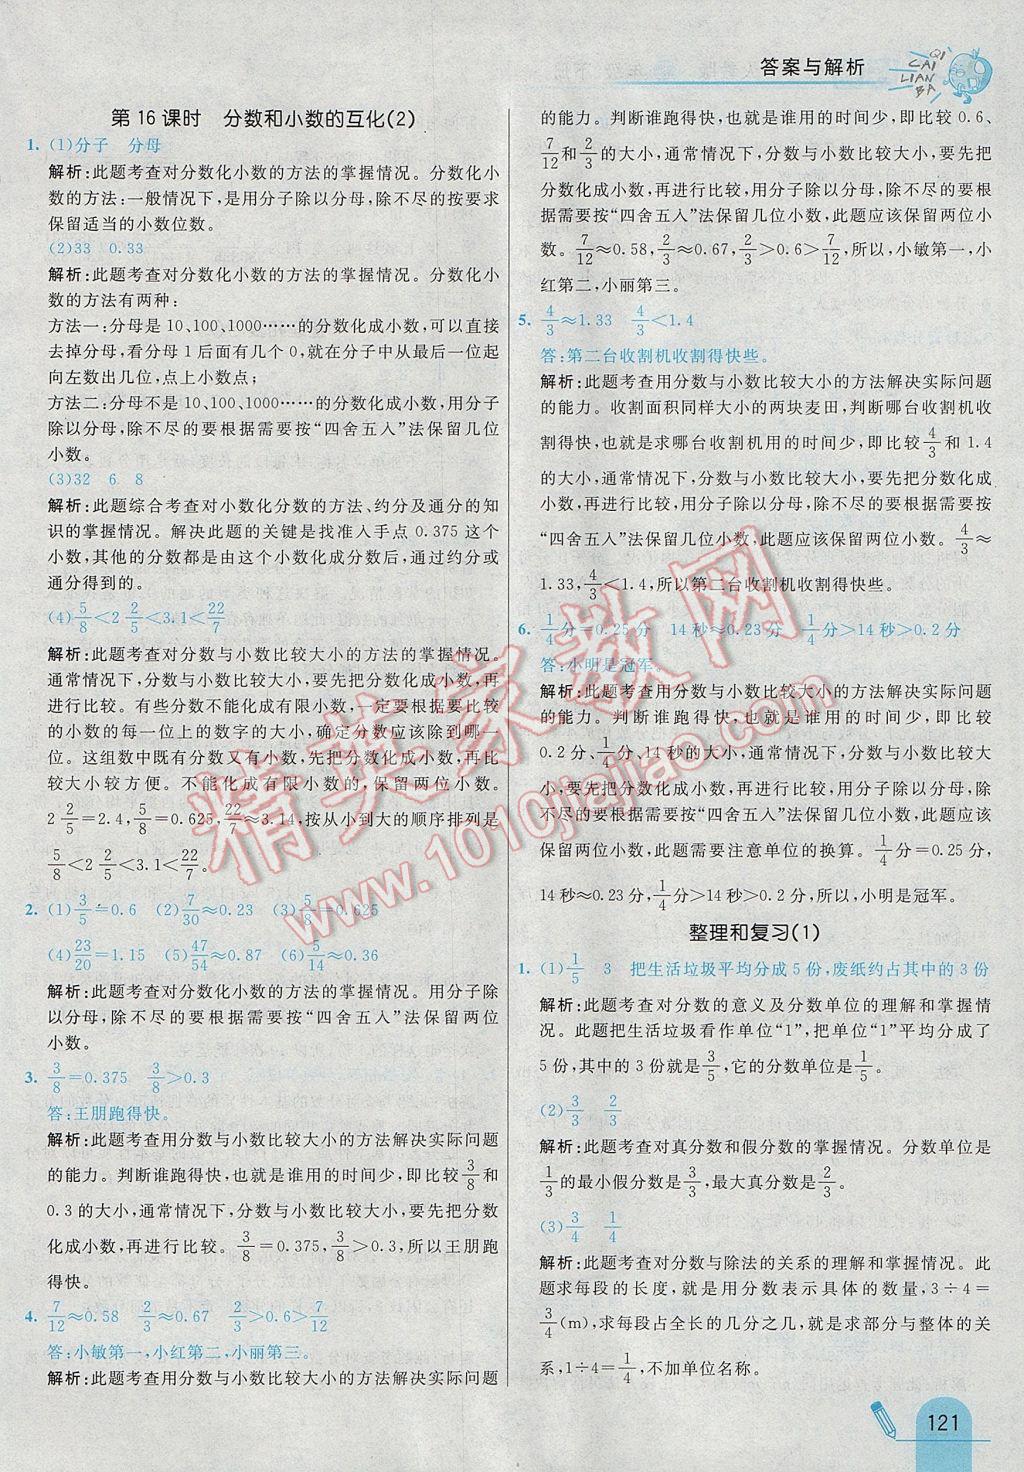 答案与解析
QI
CAI
LIAN
BA
第16课时 分数和小数的互化(2)
1. (1)分子 分母
解析:此题考查对分数化小数的方法的掌握情况。分数化小
数的方法:一般情况下,是用分子除以分母,除不尽的按要求
保留适当的小数位数。
(2)33 0.33
解析:此题考查对分数化小数的方法的掌握情况。分数化小
数的方法有两种:
方法一:分母是10,100,1000……的分数化成小数,可以直接
去掉分母,看分母1后面有几个0,就在分子中从最后一位起
向左数出几位,点上小数点;
方法二:分母不是10、100、1000……的分数化成小数,用分子
除以分母,除不尽的要根据需要按“四舍五入”法保留几位
小数。
(3)32 6 8
解析:此题综合考查对小数化分数的方法、约分及通分的知
识的掌握情况。解决此题的关键是找准入手点0.375这个
小数,其他的分数都是由这个小数化成分数后,通过约分或
通分得到的。
(4)5/8<2 2/5<3.1<22/7
解析:此题考查对分数与小数比较大小的方法的掌握情况。
通常情况下,分数与小数比较大小,要先把分数化成小数,再
进行比较。有些分数不能化成有限小数,一定要根据要比较
的小数的每一位上的数字的大小,确定分数应该除到哪一
位。这组数中既有分数又有小数,先把分数化成小数,再比
较大小较方便。不能化成有限小数的,保留两位小数。
2 2/5=2.4,5/8=0.625,22/7≈3.14,按从小到大的顺序排列是
5/8<2 2/5<3.1<22/7。
2. (1)3/5=0.6 (2)7/30≈0.23 (3)5/8=0.625
(4)23/20=1.15 (5)47/54≈0.87 (6)5/14≈0.36
解析:此题考查对分数化小数的方法的掌握情况。用分子除
以分母,除不尽的要根据需要按“四舍五入”法保留两位
小数。
3. 3/8=0.375 3/8>0.3
答:王朋跑得快。
解析:此题考查用分数与小数比较大小的方法解决实际问题
的能力。判断谁跑得快,也就是谁用的时间少,即比较3/8和
0.3的大小,通常情况下,分数与小数比较大小,要先把分数
化成小数,再进行比较。3/8=0.375,3/8>0.3,所以王朋跑
得快。
4. 7/12≈0.58 2/3≈0.67 2/3>0.6>7/12
答:小敏第一,小红第二,小丽第三。
解析:此题考查用分数与小数比较大小的方法解决实际问题
的能力。判断谁跑得快,也就是谁用的时间少,即比较0.6、
7/12和2/3的大小,通常情况下,分数与小数比较大小,要先把
分数化成小数,再进行比较,用分子除以分母,除不尽的要根
据需要按“四舍五入”法保留几位小数,此题应该保留两位小
数。7/12≈0.58,2/3≈0.67,2/3>0.6>7/12,所以,小敏第一,小
红第二,小丽第三。
5. 4/3≈1.33 4/3<1.4
答:第二台收割机收割得快些。
解析:此题考查用分数与小数比较大小的方法解决实际问题
的能力。收割面积同样大小的两块麦田,判断哪台收割机收
割得快,也就是求哪台收割机用的时间少,即比较4/3和1.4
的大小,通常情况下,分数与小数比较大小,要先把分数化成
小数,再进行比较,用分子除以分母,除不尽的要根据需要按
“四舍五入”法保留几位小数,此题应该保留两位小数。4/3≈
1.33,4/3<1.4,所以第二台收割机收割得快些。
6. 1/4分=0.25分 14秒≈0.23分 1/4分>14秒>0.2分
答:小明是冠军。
解析:此题考查用分数与小数比较大小的方法解决实际问题
的能力。判断谁跑得快,也就是谁用的时间少,即比较
0.2分、1/4分、14秒的大小,通常情况下,分数与小数比较大
小,要先把分数化成小数,再进行比较,用分子除以分母,除
不尽的要根据需要按“四舍五入”法保留几位小数,此题应该
保留两位小数,此题需要注意单位的换算。1/4分=0.25分,
14秒≈0.23分,1/4分>14秒>0.2分,所以,小明是冠军。
整理和复习(1)
1. (1)1/5 3 把生活垃圾平均分成5份,废纸约占其中的3份
解析:此题考查对分数的意义及分数单位的理解和掌握情
况。此题把生活垃圾看作单位“1”,把单位“1”平均分成了
5份,其中的3份就是3/5,它的分数单位是1/5。
(2)3/3 2/3
解析:此题考查对真分数和假分数的掌握情况。分数单位是
1/3的最小假分数是3/3,最大真分数是2/3。
(3)3/4 1/4
解析:此题考查对分数与除法的关系的理解和掌握情况。此
题求每段的长度,就是用分数表示具体的数量,3÷4=
3/4(m),求每段占全长的几分之几,就是求部分与整体的关
系,1÷4=1/4,不加单位名称。
121
精英家教网
www.1010jiajiao.com